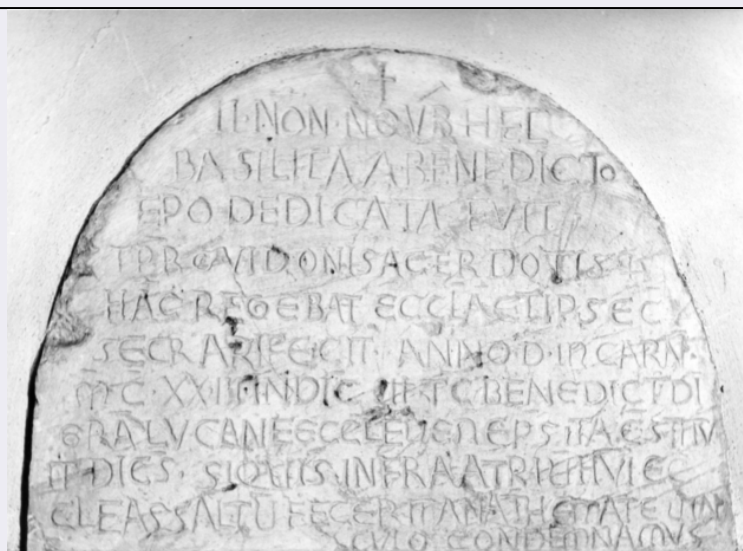 ✝
II·NON·NOVB HEC
BASILICA A BENEDICTO
EPO DEDICATA FVIT
TPR GVIDONIS ACERDOTIS
HAC REGEBAT ECCLA ET IPSE C
SECRARI FECIT· ANNO D·INCARN·
MC·XXII INDIC BENEDICT DI
GRA LVCANE ECCLE VEN EPS ITA
DIES· SIQUIS·INFRA ATRIUM
CLE ASSALTŪ FECERIT ANATHEMATE
CVLO CONDEMNAMVS